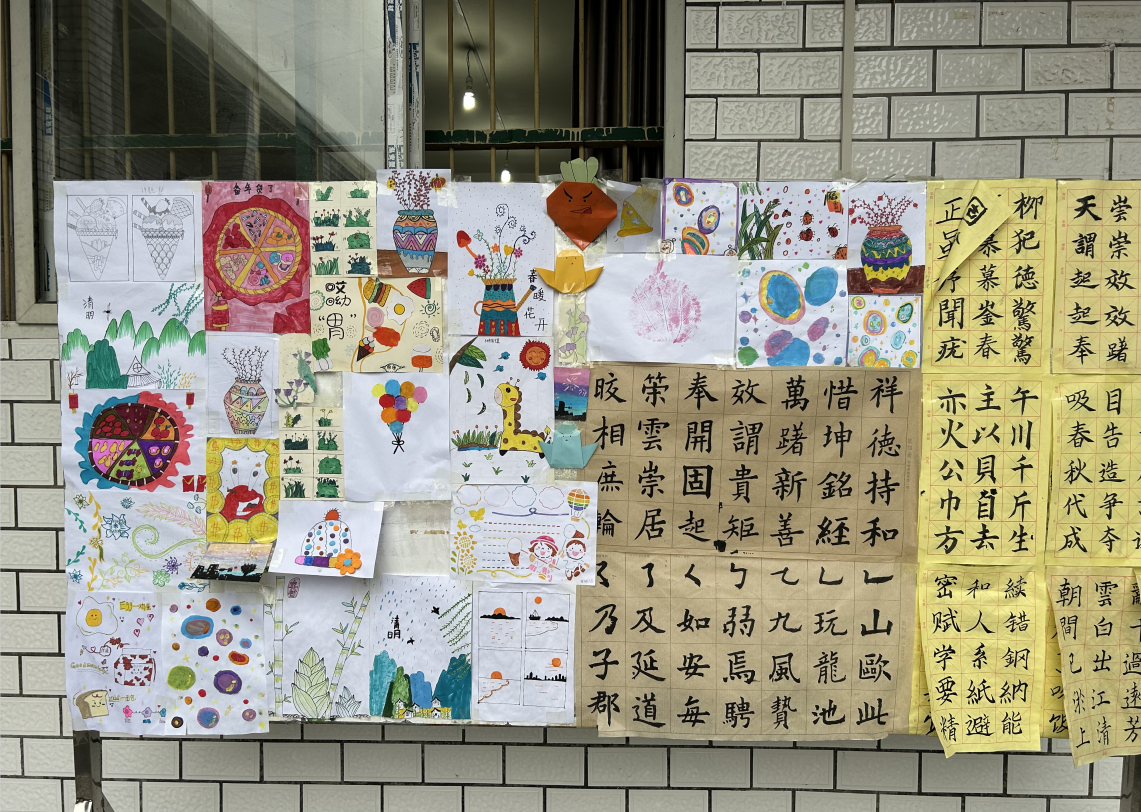 清明
哎呦
"胃"
春暖花
清明
祥德持和
惜坤銘経
萬躇新善
效謂貴矩
奉開固起
荣雲崇居
皎相庶輪
山歐此
玩龍池
九風贄
弱焉騁
如安每
及延道
乃子郡
柳犯德驚驚
慕崟春
正
聞
崇崇效效躇
天謂起起奉
午川千斤生
主以貝自去
亦火公巾方
目告造争夺
吸春秋代成
续错鋼納能
和人系紙避
密赋学要精
過遠芳
雲白出江清
朝間
上